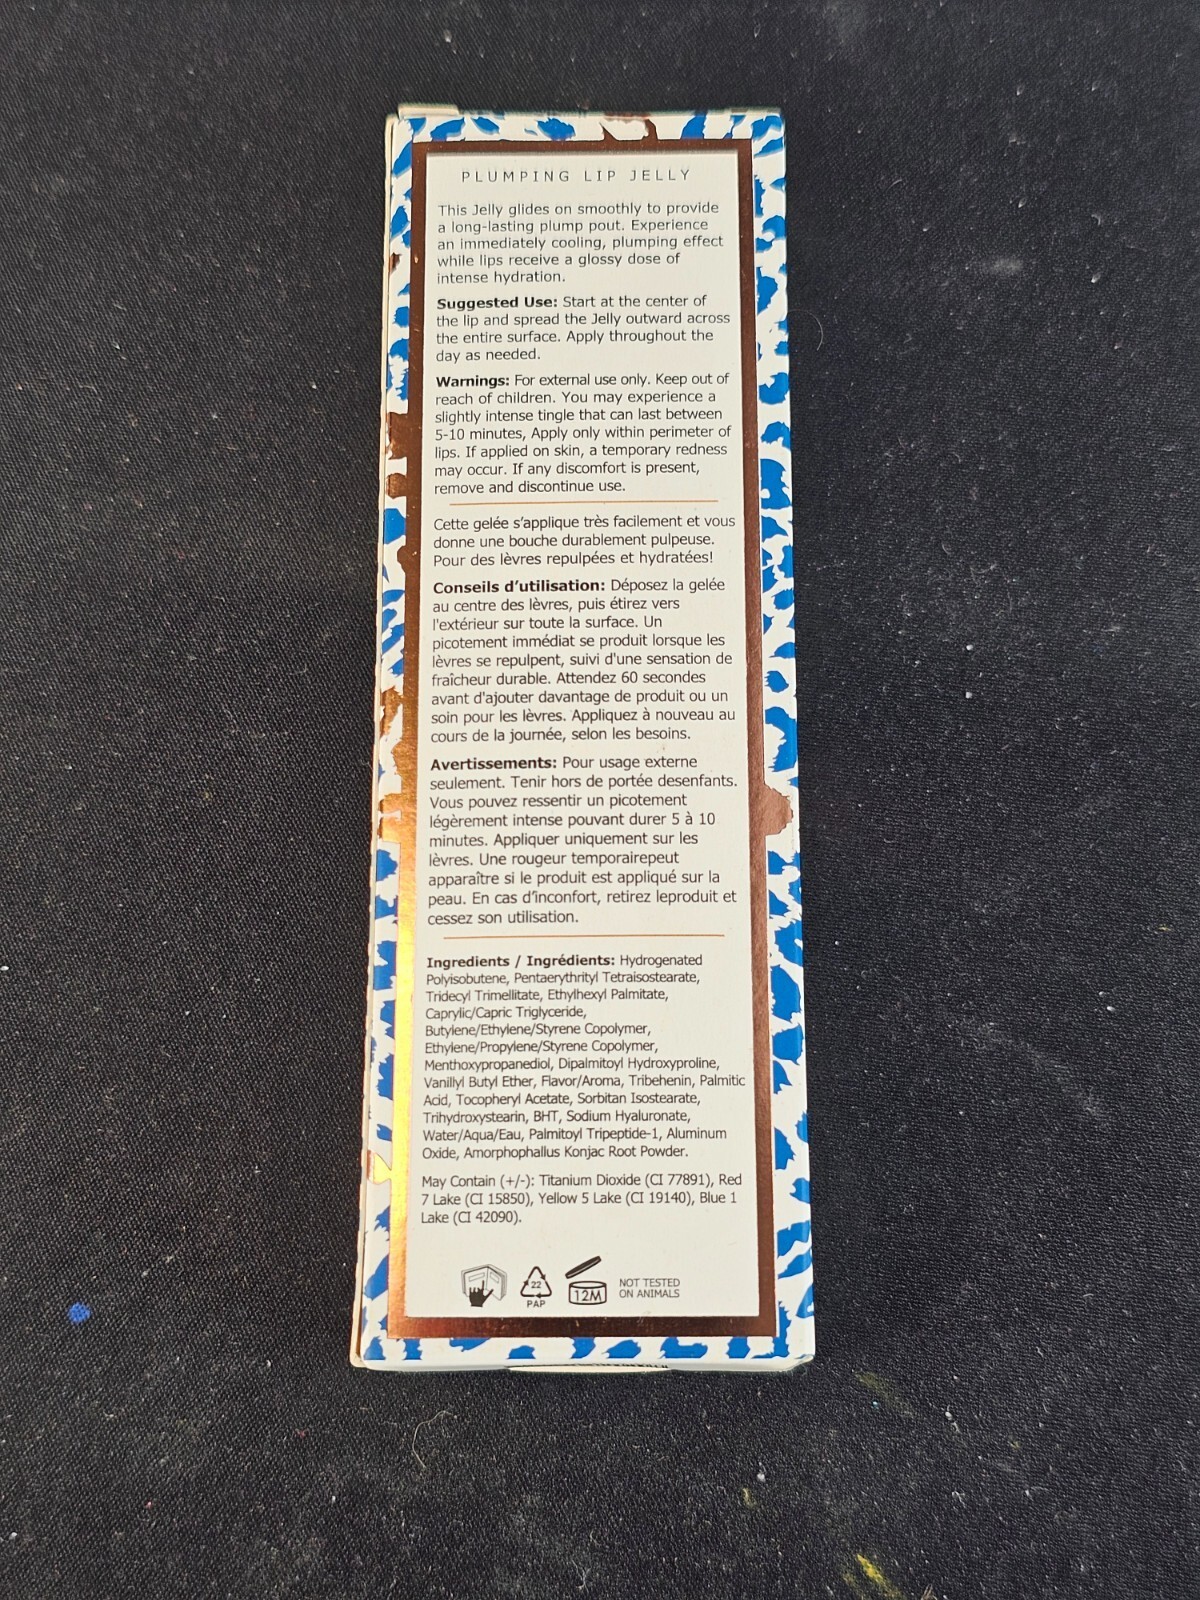 PLUMPING LIP JELLY
This Jelly glides on smoothly to provide
a long-lasting plump pout. Experience
an immediately cooling, plumping effect
while lips receive a glossy dose of
intense hydration.
Suggested Use: Start at the center of
the lip and spread the Jelly outward across
the entire surface. Apply throughout the
day as needed.
Warnings: For external use only. Keep out of
reach of children. You may experience a
slightly intense tingle that can last between
5-10 minutes, Apply only within perimeter of
lips. If applied on skin, a temporary redness
may occur. If any discomfort is present,
remove and discontinue use.
Cette gelée s’applique très facilement et vous
donne une bouche durablement pulpeuse.
Pour des lèvres repulpées et hydratées!
Conseils d’utilisation: Déposez la gelée
au centre des lèvres, puis étirez vers
l'extérieur sur toute la surface. Un
picotement immédiat se produit lorsque les
lèvres se repulpent, suivi d'une sensation de
fraîcheur durable. Attendez 60 secondes
avant d'ajouter davantage de produit ou un
soin pour les lèvres. Appliquez à nouveau au
cours de la journée, selon les besoins.
Avertissements: Pour usage externe
seulement. Tenir hors de portée desenfants.
Vous pouvez ressentir un picotement
légèrement intense pouvant durer 5 à 10
minutes. Appliquer uniquement sur les
lèvres. Une rougeur temporairepeut
apparaître si le produit est appliqué sur la
peau. En cas d’inconfort, retirez leproduit et
cessez son utilisation.
Ingredients / Ingrédients: Hydrogenated
Polyisobutene, Pentaerythrityl Tetraisostearate,
Tridecyl Trimellitate, Ethylhexyl Palmitate,
Caprylic/Capric Triglyceride,
Butylene/Ethylene/Styrene Copolymer,
Ethylene/Propylene/Styrene Copolymer,
Menthoxypropanediol, Dipalmitoyl Hydroxyproline,
Vanillyl Butyl Ether, Flavor/Aroma, Tribehenin, Palmitic
Acid, Tocopheryl Acetate, Sorbitan Isostearate,
Trihydroxystearin, BHT, Sodium Hyaluronate,
Water/Aqua/Eau, Palmitoyl Tripeptide-1, Aluminum
Oxide, Amorphophallus Konjac Root Powder.
May Contain (+/-): Titanium Dioxide (CI 77891), Red
7 Lake (CI 15850), Yellow 5 Lake (CI 19140), Blue 1
Lake (CI 42090).
22
PAP
12M
NOT TESTED
ON ANIMALS